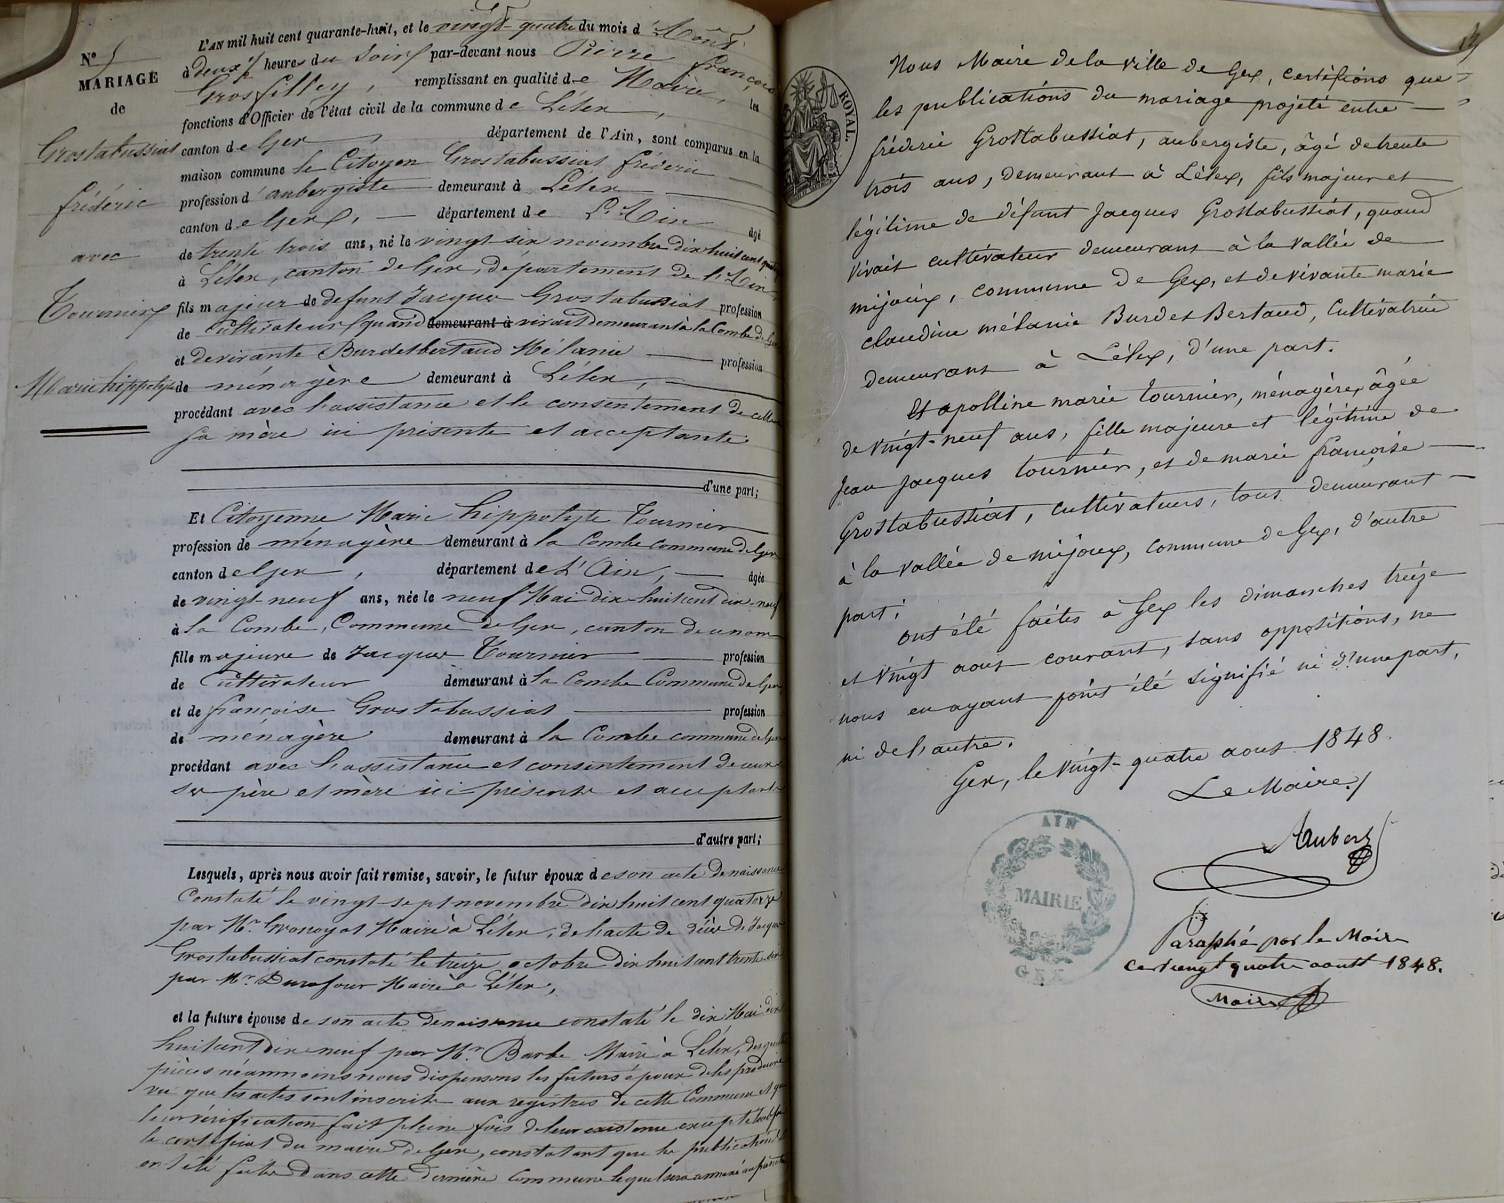 N° 5
MARIAGE
de
Grostabussiat
frédéric
avec
Tournier
Marie hippolyte
L'AN mil huit cent quarante-huit, et le vingt-quatre du mois d'Août
à deux heures du soir par-devant nous Pierre françois
Grosfilley, remplissant en qualité de Maire, les
fonctions d'Officier de l'état civil de la commune de Lélex,
canton de Gex, département de l'Ain, sont comparus en la
maison commune le Citoyen Grostabussiat fréderic
profession d'aubergiste demeurant à Lélex
canton de Gex, département de L'Ain âgé
de trente trois ans, né le vingt six novembre dix huit cent
à Lélex, canton de Gex, département de l'Ain
fils majeur de defunt Jacques Grostabussiat profession
de Cultivateur quand demeurant à vivait demeurant à la Combe de
et de vivante Burdetbertaud Mélanie profession
de ménagère demeurant à Lélex,
procédant avec l'assistance et le consentement de cette
sa mère ici présente et acceptante
d'une part;
Et Citoyenne Marie hippolyte Tournier
profession de ménagère demeurant à la Combe commune de Gex
canton de Gex, département de L'Ain, âgée
de vingt-neuf ans, née le neuf Mai dix-huit cent dix-neuf
à la Combe, Commune de Gex, canton de ce nom
fille majeure de Jacques Tournier profession
de Cultivateur demeurant à la Combe Commune de Gex
et de françoise Grostabussiat profession
de ménagère demeurant à la Combe commune de Gex
procédant avec l'assistance et consentement de
père et mère ici présents et acceptants
d'autre part;
Lesquels, après nous avoir fait remise, savoir, le futur époux de son acte de naissance
Constaté le vingt-sept novembre dix huit cent quatorze
par Mr. Maire à Lélex, de l'acte de décès de Jacques
Grostabussiat constaté le treize octobre dix huit cent trente
par Mr. Durafour Maire à Lélex,
et la future épouse de son acte de naissance constaté le dix Mai dix
huit cent dix neuf par Mr. Barbe Maire à Lélex, desquelles
pièces néanmoins nous dispensons les futurs époux de les produire
vu que les actes sont inscrits aux registres de cette Commune et que
leur vérification fait pleine fois de leur existence excepté
le certificat du maire de Gex, constatant que les publications
ont été faites dans cette dernière Commune lequel sera annexé au présent
ROYAL
Nous Maire de la ville de Gex, certifions que
les publications du mariage projeté entre
fréderic Grostabussiat, aubergiste, âgé de trente
trois ans, demeurant à Lélex, fils majeur et
légitime de défunt Jacques Grostabussiat, quand
vivait cultivateur demeurant à la vallée de
mijoux, commune de Gex, et de vivante marie
claudine mélanie Burdet Bertaud, Cultivatrice
demeurant à Lélex, d'une part.
Et apolline marie tournier, ménagère, âgée
de vingt-neuf ans, fille majeure et légitime de
Jean Jacques tournier, et de marie françoise
Grostabussiat, cultivateurs, tous demeurant
à la vallée de mijoux, commune de Gex, d'autre
part;
ont été faites à Gex les dimanches treize
et vingt aout courant, sans oppositions, ne
nous en ayant point été signifié ni d'une part,
ni de l'autre.
Gex, le vingt-quatre aout 1848.
Le Maire
Aubert
AIN
MAIRIE
GEX
Paraphé par le Maire
ce vingt quatre aoutt 1848.
Maire